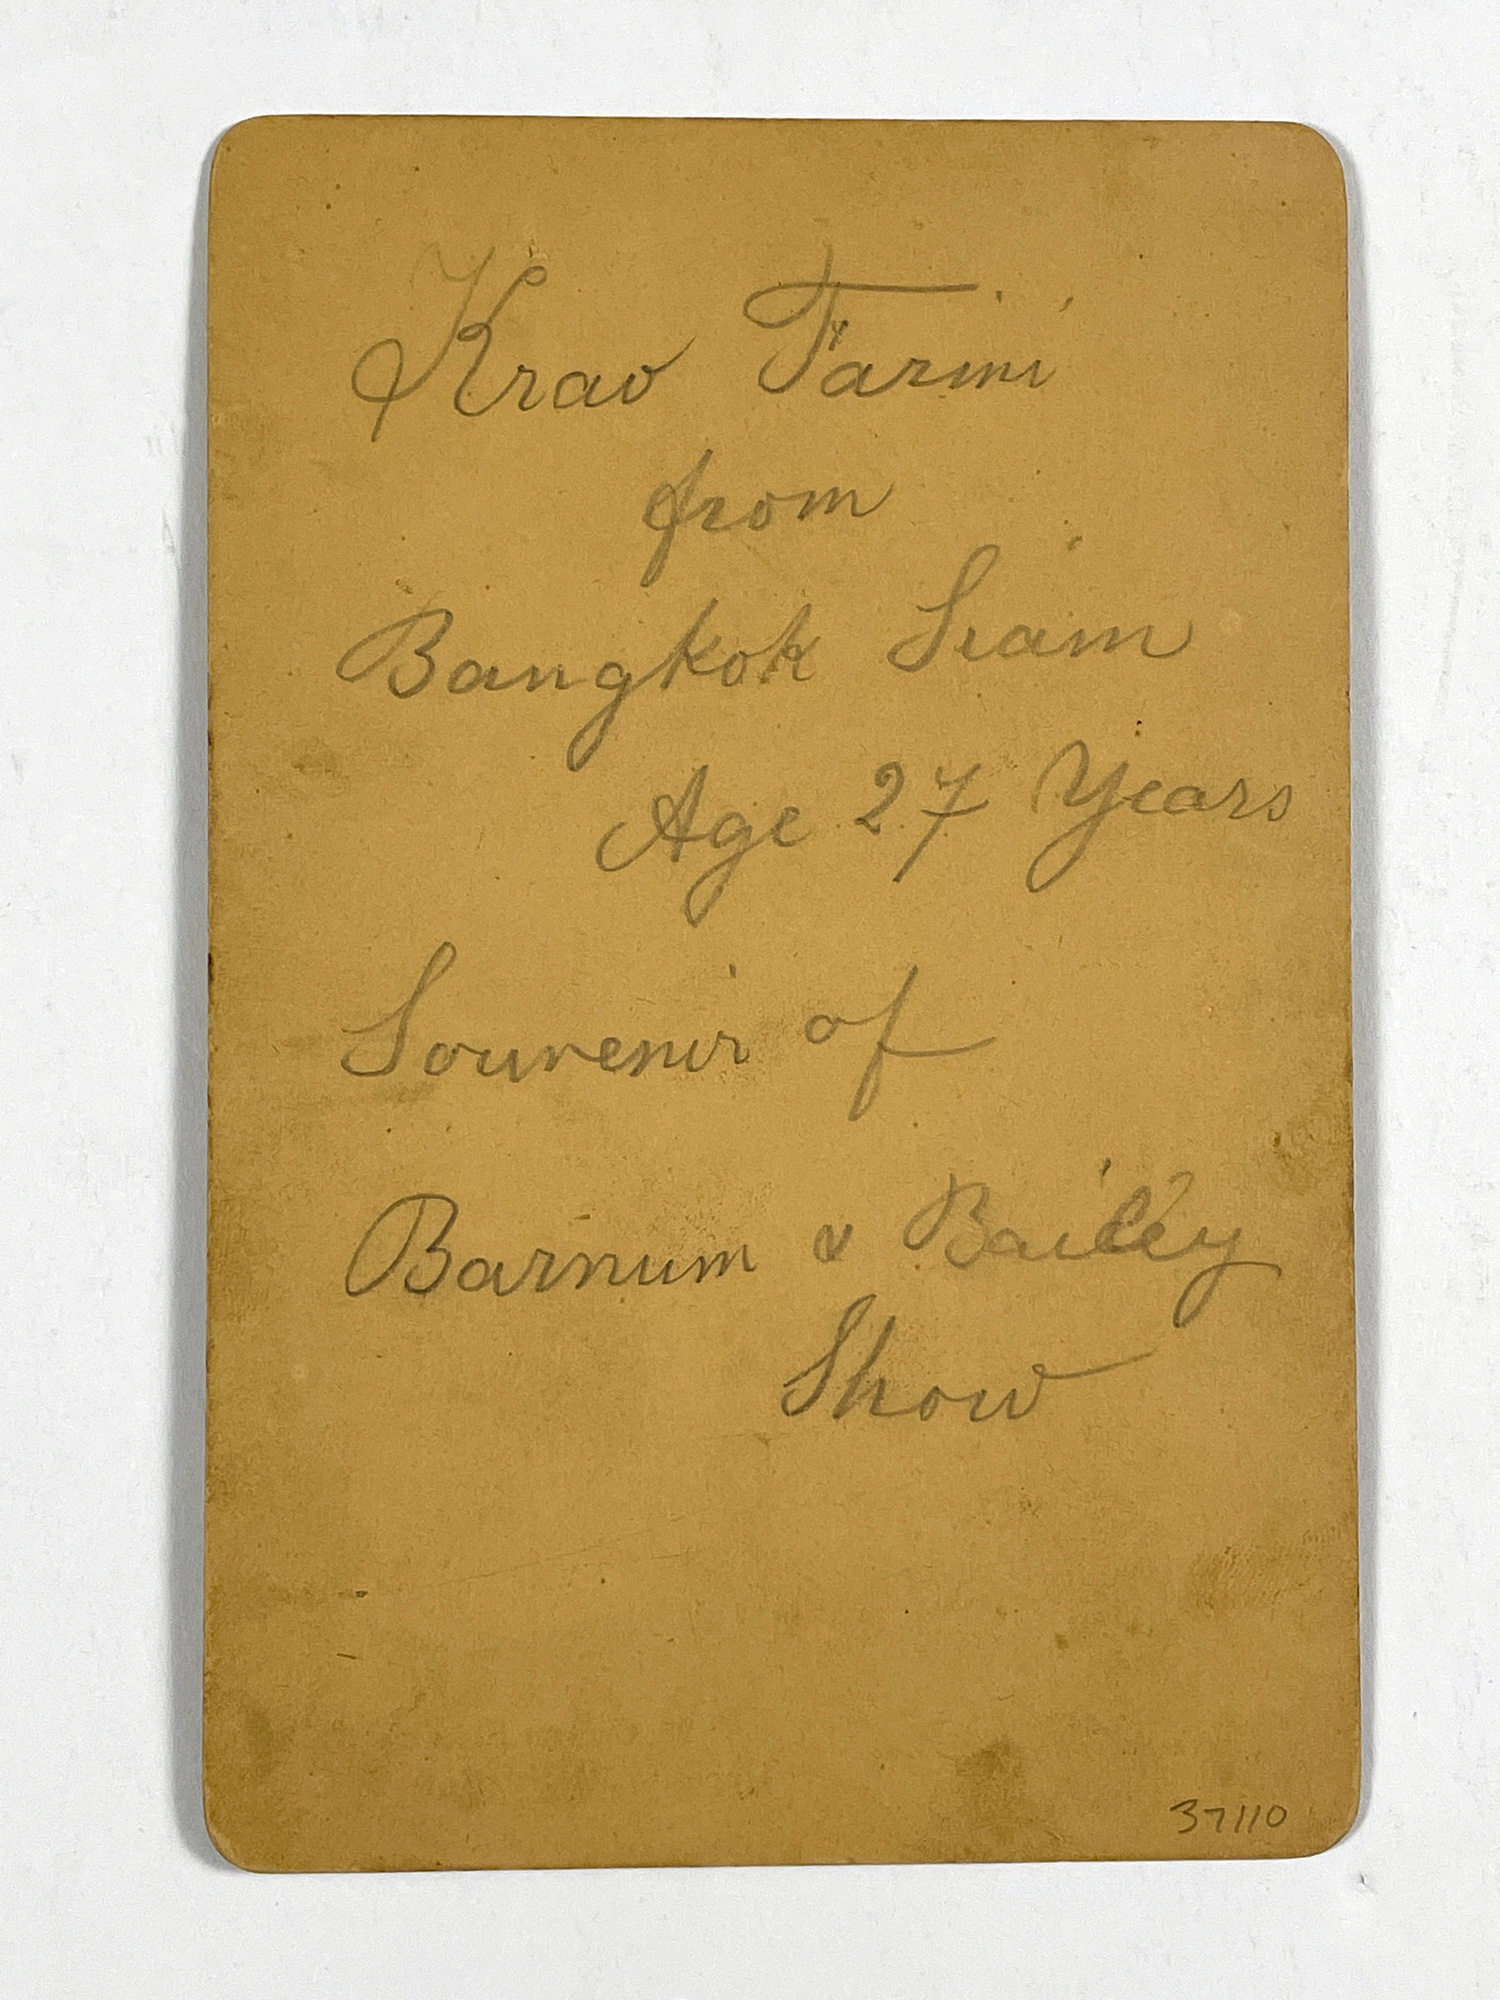 Krao Farini
from
Bangkok Siam
Age 27 Years
Souvenir of
Barnum & Bailey
Show
37110